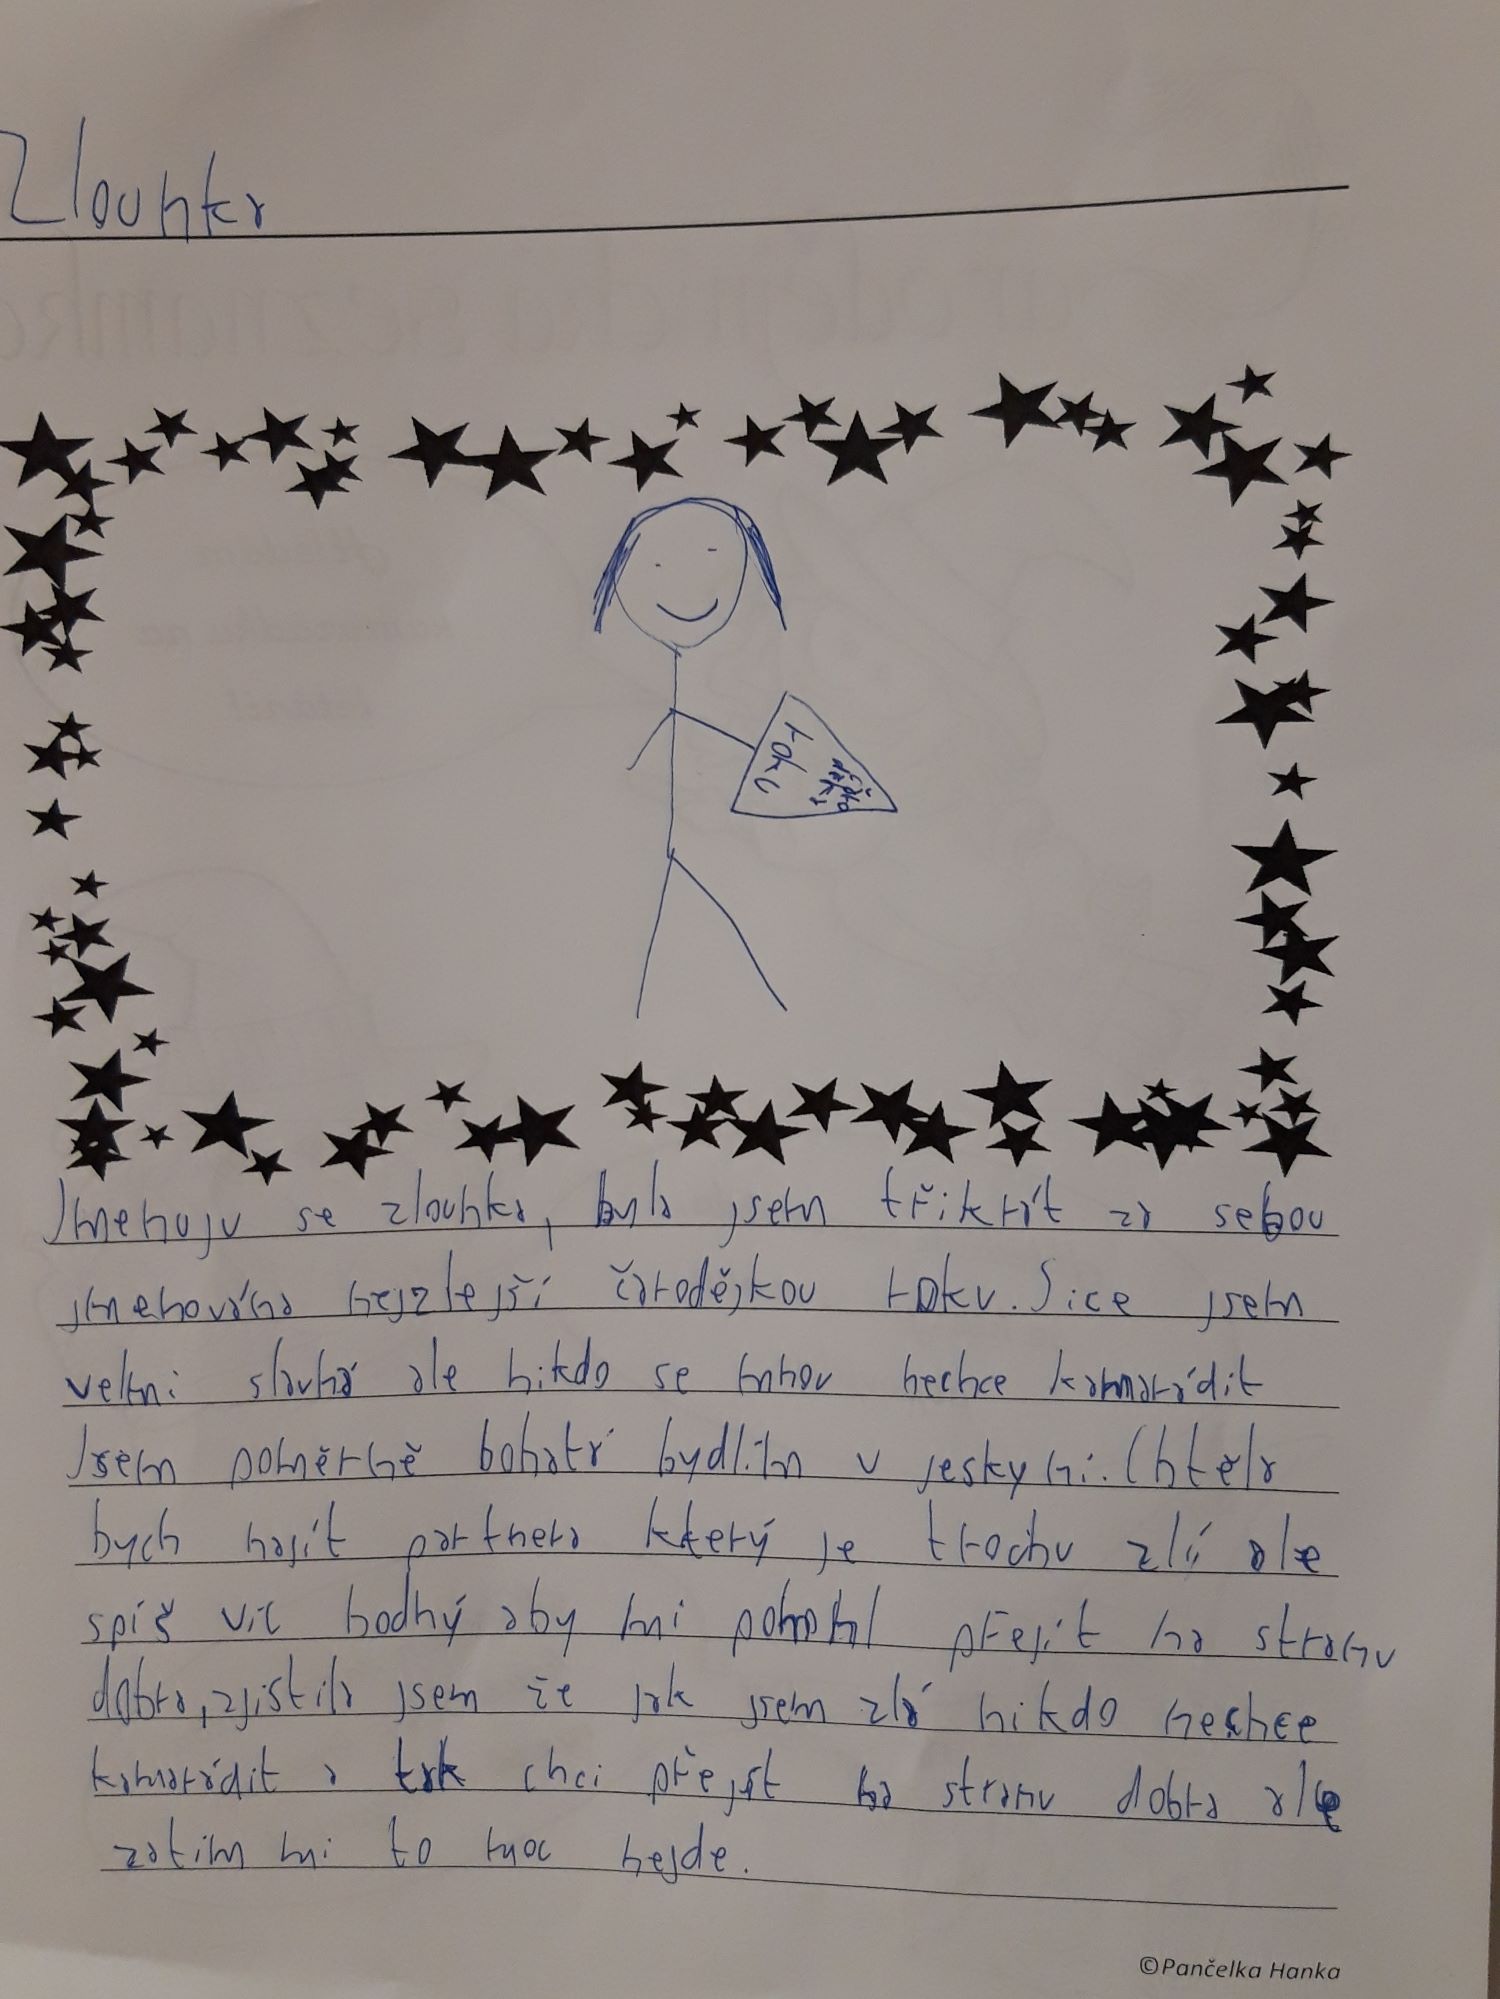 Zlounka
roku
Jmenuju se zlounka, byla jsem třikrát za sebou
jmenována nejzlejší čarodějkou roku. Sice jsem
velmi slavná ale nikdo se mnou nechce kamarádit
Jsem poměrně bohatá bydlím v jeskyni. Chtěla
bych najít partnera který je trochu zlý ale
spíš víc hodný aby mi pomohl přejít na stranu
dobra, zjistila jsem že jak jsem zlá nikdo nechce
kamarádit a tak chci přejít na stranu dobra ale
zatím mi to moc nejde.
©Pančelka Hanka